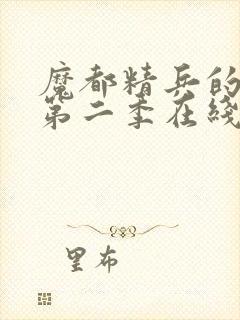 魔都精兵的
第二季在线
里布